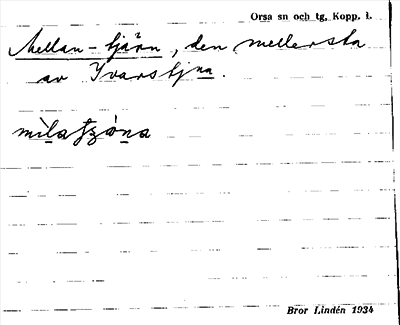 Orsa sn och tg, Kopp. l.
Mellan-tjärn, den mellersta
av Yvarstjna.
Bror Lindén 1934